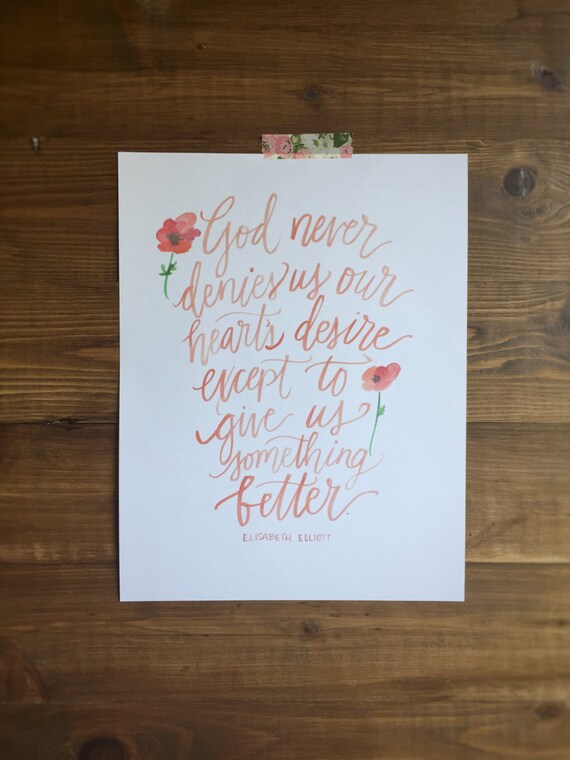 God never
denies us our
heart's desire
except to
give us
something
better.
ELISABETH ELLIOTT